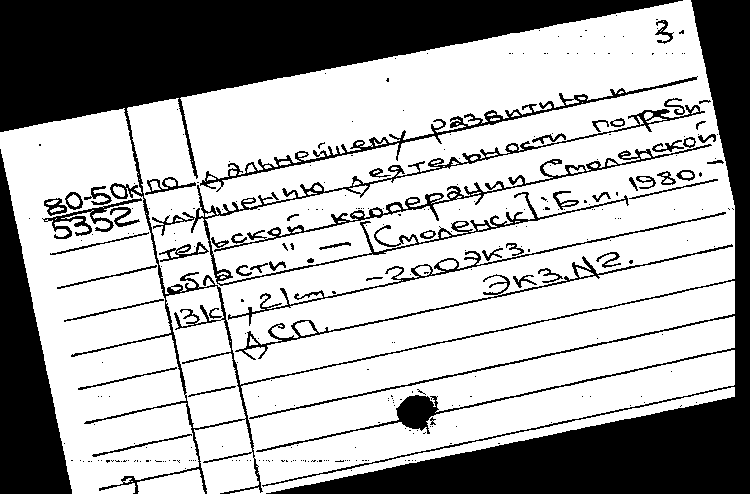 3.
80-50к по дальнейшему развитию и
5352 улучшению деятельности потреби-
тельской кооперации Смоленской
области". — [Смоленск]: Б.и., 1980. -
131с.; 21 см. - 200экз.
ДСП. Экз. N2.